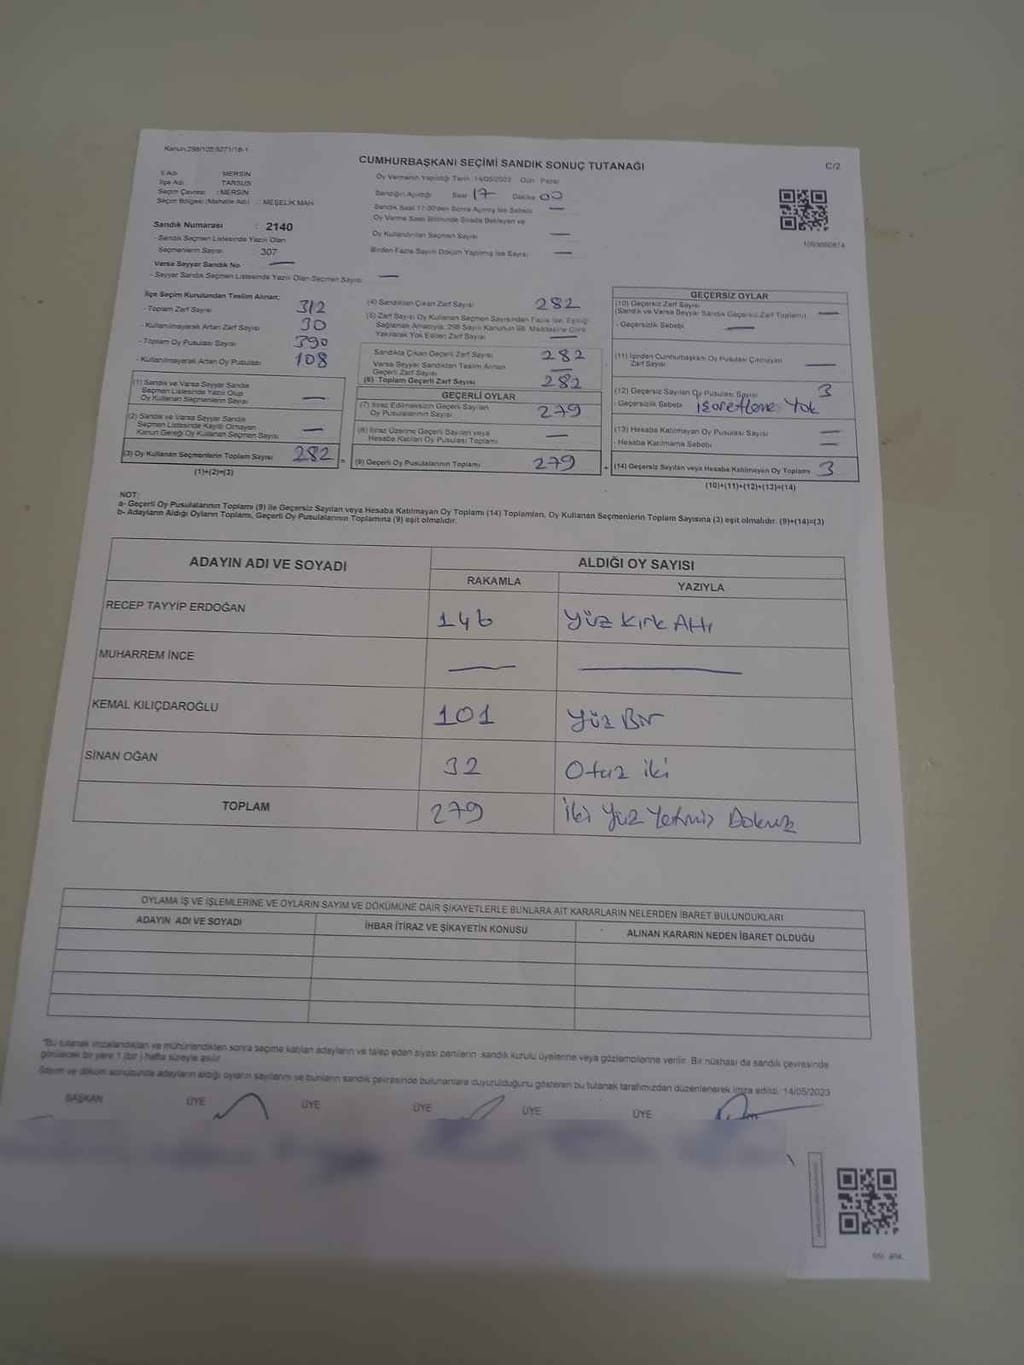 Kanun:298/105;6271/18-1
CUMHURBAŞKANI SEÇİMİ SANDIK SONUÇ TUTANAĞI
C/2
İl Adı : MERSİN
İlçe Adı : TARSUS
Seçim Çevresi : MERSİN
Seçim Bölgesi (Mahalle Adı) : MEŞELİK MAH.
Oy Vermenin Yapıldığı Tarih: 14/05/2023 Gün: Pazar
Sandığın Açıldığı Saat 17 Dakika 00
Sandık Saat 17:00'den Sonra Açılmış İse Sebebi —
Oy Verme Saati Bitiminde Sırada Bekleyen ve
Oy Kullandırılan Seçmen Sayısı —
Birden Fazla Sayım Döküm Yapılmış İse Sayısı —
Sandık Numarası : 2140
- Sandık Seçmen Listesinde Yazılı Olan
Seçmenlerin Sayısı : 307
Varsa Seyyar Sandık No —
- Seyyar Sandık Seçmen Listesinde Yazılı Olan Seçmen Sayısı —
İlçe Seçim Kurulundan Teslim Alınan;
- Toplam Zarf Sayısı 312
- Kullanılmayarak Artan Zarf Sayısı 30
- Toplam Oy Pusulası Sayısı 390
- Kullanılmayarak Artan Oy Pusulası 108
(1) Sandık ve Varsa Seyyar Sandık
Seçmen Listesinde Yazılı Olup
Oy Kullanan Seçmenlerin Sayısı —
(2) Sandık ve Varsa Seyyar Sandık
Seçmen Listesinde Kayıtlı Olmayan
Kanun Gereği Oy Kullanan Seçmen Sayısı —
(3) Oy Kullanan Seçmenlerin Toplam Sayısı 282
(1)+(2)=(3)
(4) Sandıktan Çıkan Zarf Sayısı 282
(5) Zarf Sayısı Oy Kullanan Seçmen Sayısından Fazla İse, Eşitliği
Sağlamak Amacıyla, 298 Sayılı Kanunun 98. Maddesine Göre
Yakılarak Yok Edilen Zarf Sayısı —
Sandıkta Çıkan Geçerli Zarf Sayısı 282
Varsa Seyyar Sandıktan Teslim Alınan
Geçerli Zarf Sayısı —
(6) Toplam Geçerli Zarf Sayısı 282
GEÇERLİ OYLAR
(7) İtiraz Edilmeksizin Geçerli Sayılan
Oy Pusulalarının Sayısı 279
(8) İtiraz Üzerine Geçerli Sayılan veya
Hesaba Katılan Oy Pusulası Toplamı —
(9) Geçerli Oy Pusulalarının Toplamı 279
GEÇERSİZ OYLAR
(10) Geçersiz Zarf Sayısı
(Sandık ve Varsa Seyyar Sandık Geçersiz Zarf Toplamı) —
- Geçersizlik Sebebi —
(11) İçinden Cumhurbaşkanı Oy Pusulası Çıkmayan
Zarf Sayısı —
(12) Geçersiz Sayılan Oy Pusula Sayısı 3
- Geçersizlik Sebebi işaretleme Yok
(13) Hesaba Katılmayan Oy Pusulası Sayısı —
- Hesaba Katılmama Sebebi —
(14) Geçersiz Sayılan veya Hesaba Katılmayan Oy Toplamı 3
(10)+(11)+(12)+(13)=(14)
NOT:
a- Geçerli Oy Pusulalarının Toplamı (9) ile Geçersiz Sayılan veya Hesaba Katılmayan Oy Toplamı (14) Toplamları, Oy Kullanan Seçmenlerin Toplam Sayısına (3) eşit olmalıdır. (9)+(14)=(3)
b- Adayların Aldığı Oyların Toplamı, Geçerli Oy Pusulalarının Toplamına (9) eşit olmalıdır.
ADAYIN ADI VE SOYADI
ALDIĞI OY SAYISI
RAKAMLA YAZIYLA
RECEP TAYYİP ERDOĞAN 146 Yüz Kırk Altı
MUHARREM İNCE — —
KEMAL KILIÇDAROĞLU 101 Yüz Bir
SİNAN OĞAN 32 Otuz iki
TOPLAM 279 İki Yüz Yetmiş Dokuz
OYLAMA İŞ VE İŞLEMLERİNE VE OYLARIN SAYIM VE DÖKÜMÜNE DAİR ŞİKAYETLERLE BUNLARA AİT KARARLARIN NELERDEN İBARET BULUNDUKLARI
ADAYIN ADI VE SOYADI İHBAR İTİRAZ VE ŞİKAYETİN KONUSU ALINAN KARARIN NEDEN İBARET OLDUĞU
"Bu tutanak imzalandıktan ve mühürlendikten sonra seçime katılan adayların ve talep eden siyasi partilerin sandık kurulu üyelerine veya gözlemcilerine verilir. Bir nüshası da sandık çevresinde
görülecek bir yere 1 (bir) hafta süreyle asılır.
Sayım ve döküm sonucunda adayların aldığı oyların sayılarını ve bunların sandık çevresinde bulunanlara duyurulduğunu gösteren bu tutanak tarafımızdan düzenlenerek imza edildi. 14/05/2023
BAŞKAN ÜYE ÜYE ÜYE ÜYE ÜYE